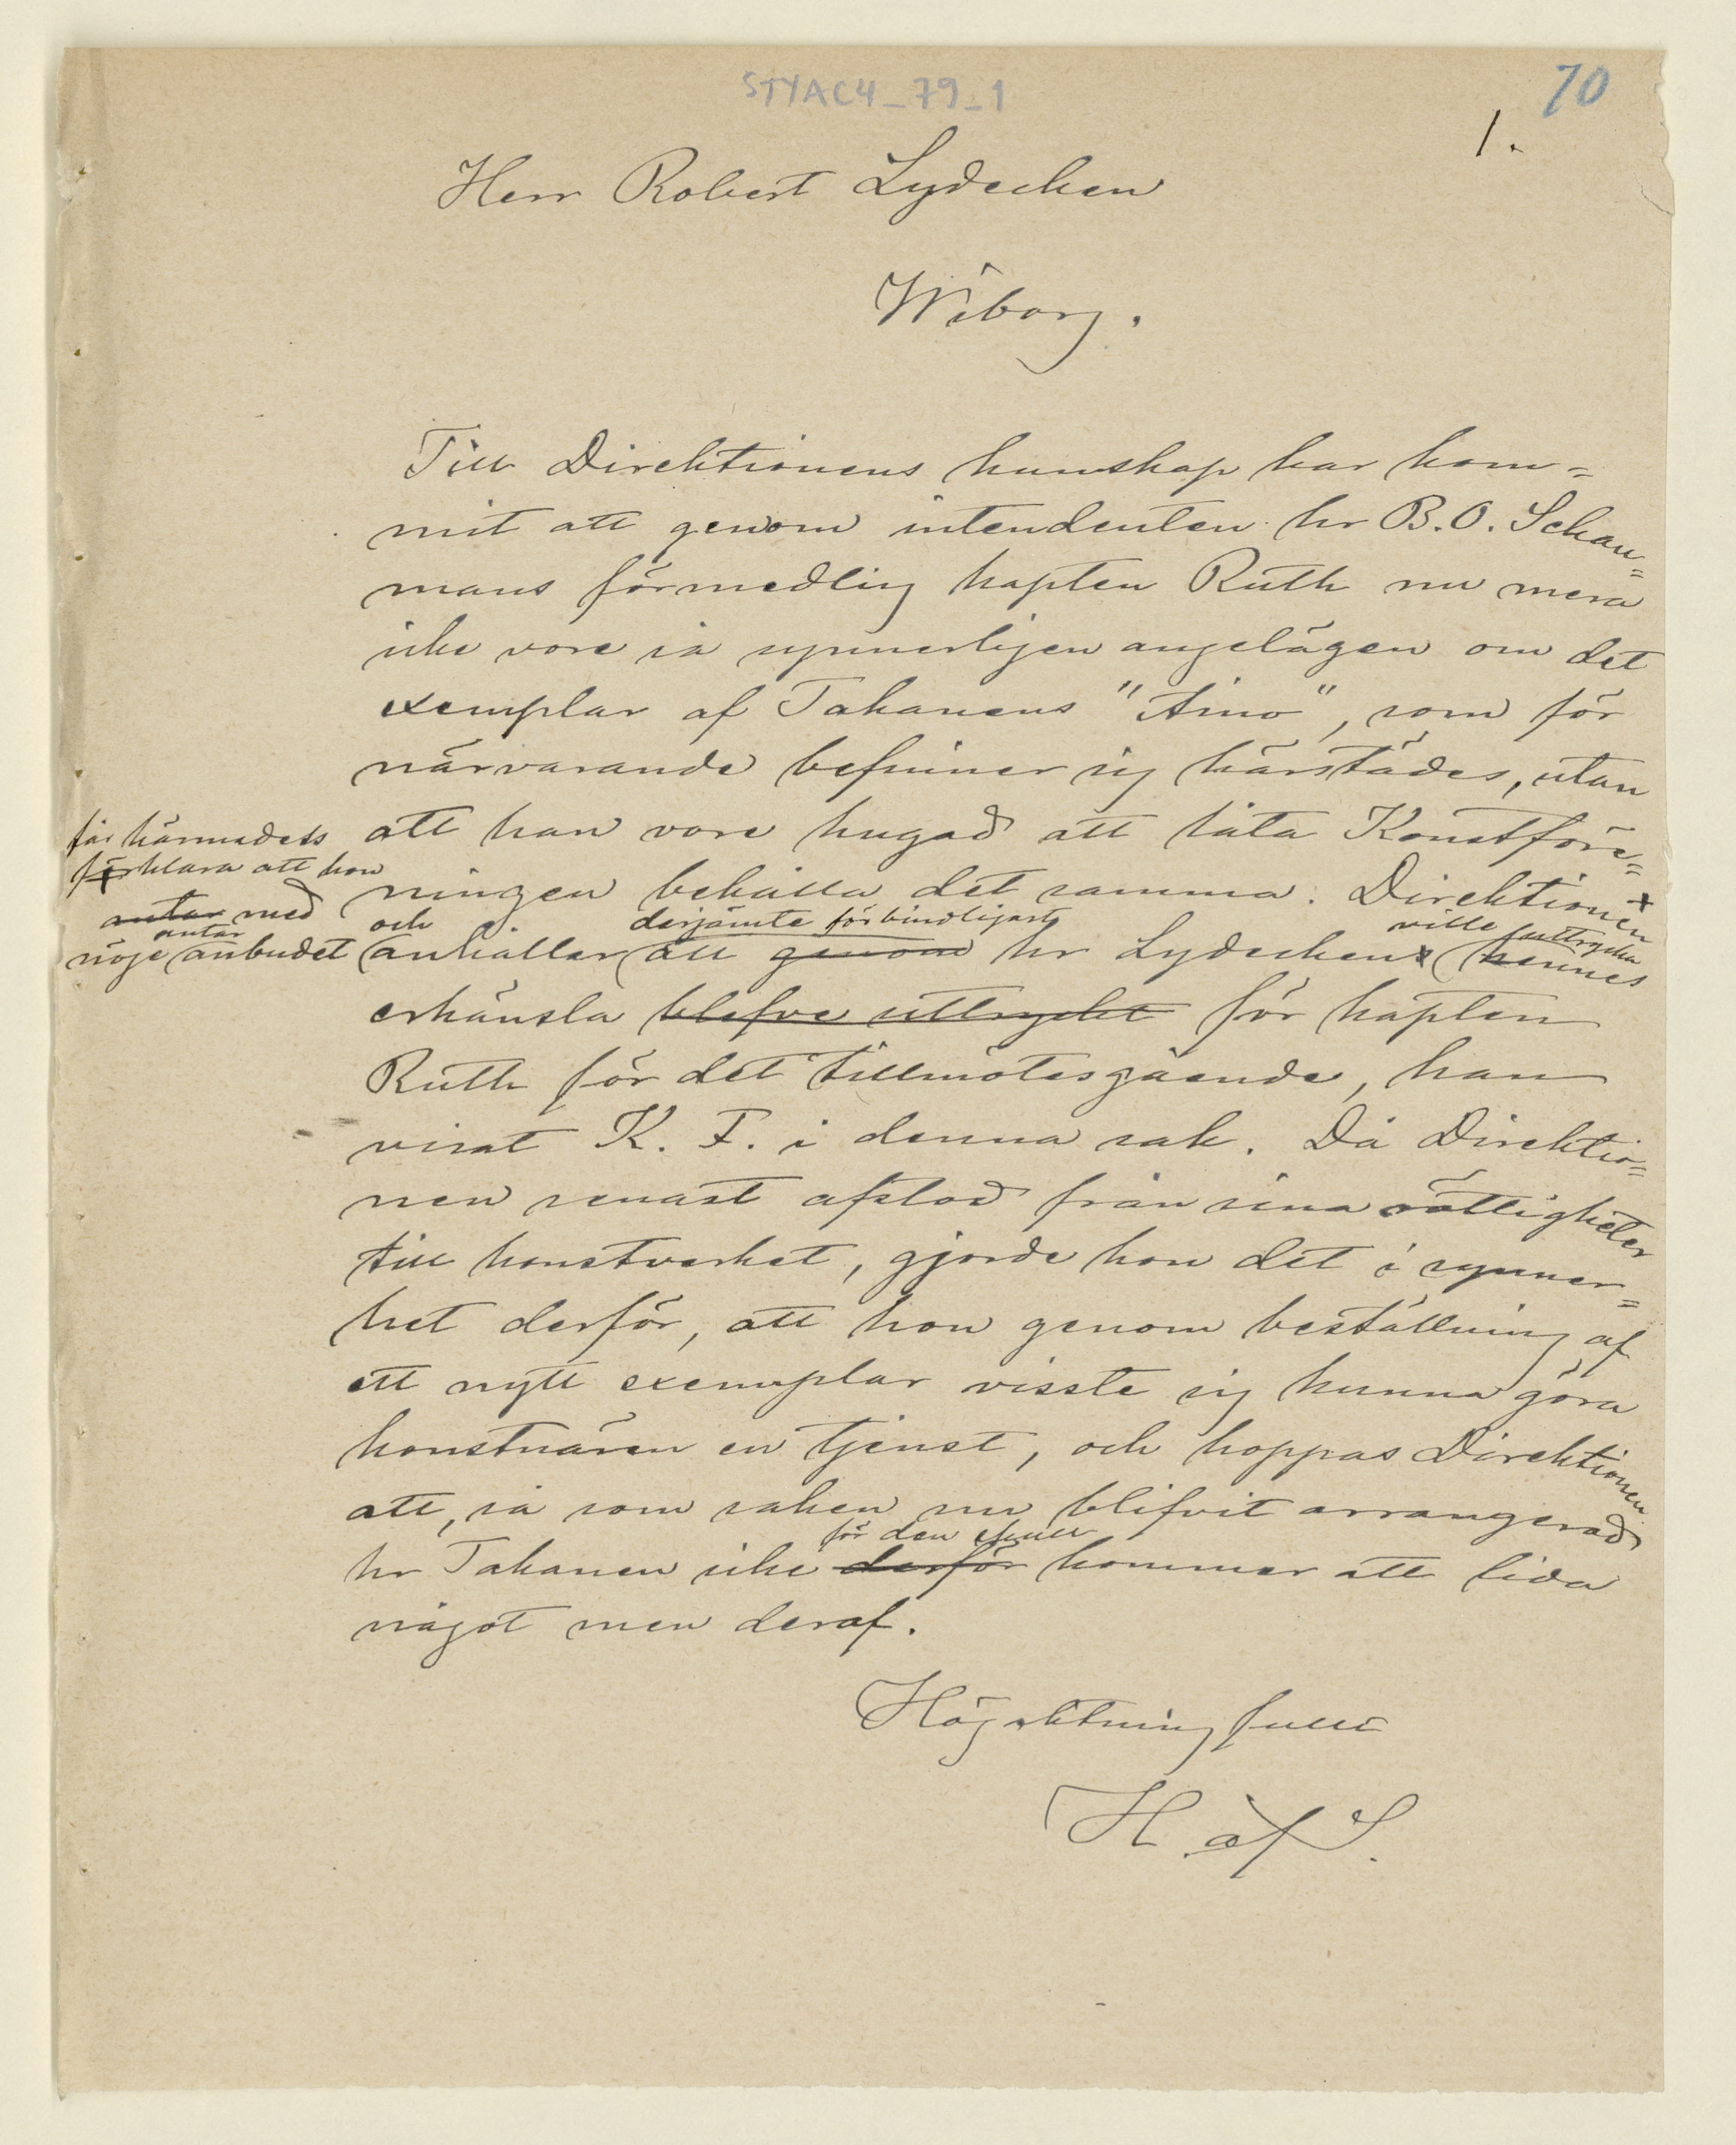 STYAC4_79_1
70
1.
Herr Robert Lydecken
Wiborg.
Till Direktionens kunskap har kom=
mit att genom intendenten hr B. O. Schau=
mans förmedling kapten Ruth nu mera
icke vore så synnerligen angelägen om det
exemplar af Takanens "Aino", som för
närvarande befinner sig härstädes, utan
att han vore hugad att låta Konstföre=
ningen behålla det samma. Direktionen +
får härmedels
+ förklara att hon
antar med
antar
nöje anbudet
och derjämte förbindligast ville uttrycka
anhåller att genom hr Lydecken hennes
erkänsla blefve uttryckt för kapten
Ruth för det tillmötesgående, han
visat K. F. i denna sak. Då Direktio=
nen senast afstod från sina rättigheter
till konstverket, gjorde hon det i synner=
het derför, att hon genom beställning af
ett nytt exemplar visste sig kunna göra
konstnären en tjenst, och hoppas Direktionen
att, så som saken nu blifvit arrangerad,
för den skull
hr Takanen icke derför kommer att lida
något men deraf.
Högaktningsfullt
H. af S.